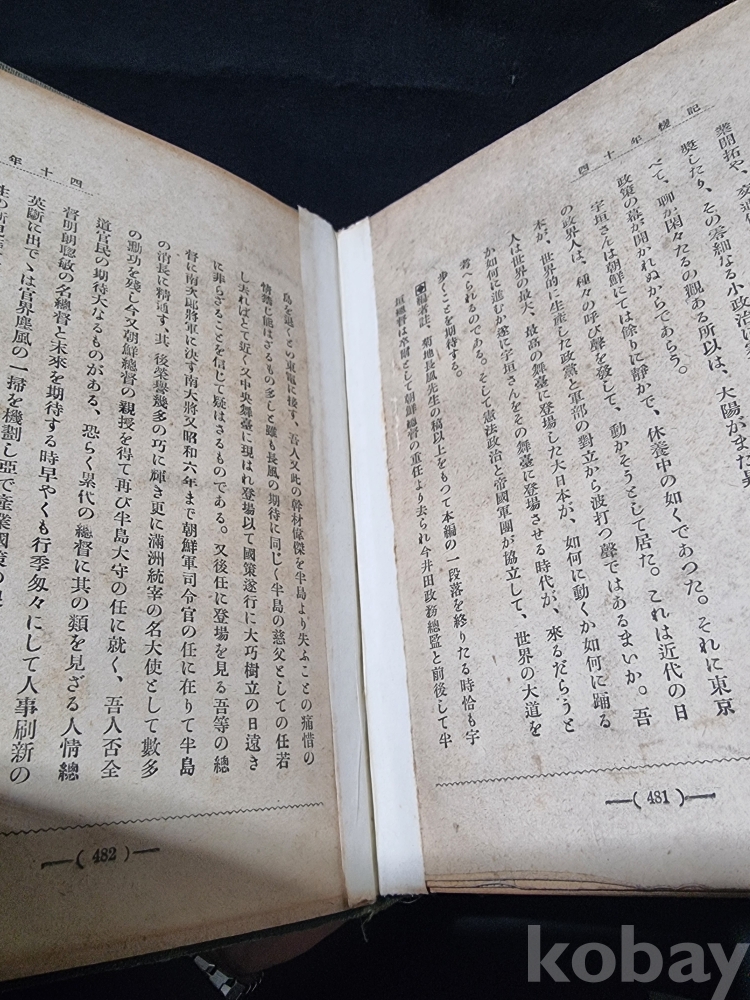 記憶年十四
業開拓や、交通
奬したり、その零細なる小政治に
べて、聊か閑々たるの觀ある所以は、大陽がまた昇
政策の幕が開かれぬからであらう。
宇垣さんは朝鮮にては餘りに靜かで、休養中の如くであつた。それに東京
の政界人は、種々の呼び聲を發して、動かそうとして居た。これは近代の日
本が、世界的に生産した政黨と軍部の對立から波打つ聲ではあるまいか。吾
人は世界の最大、最高の舞臺に登場した大日本が、如何に動くか如何に踊る
か如何に進むか遂に宇垣さんをその舞臺に登場させる時代が、來るだらうと
考へられるのである。そして憲法政治と帝國軍團が協立して、世界の大道を
歩くことを期待する。
編者註、菊地長風先生の稿以上をもつて本編の一段落を終りたる時恰も宇
垣總督は卒爾として朝鮮總督の重任より去られ今井田政務總監と前後して半
(481)
年十四
島を退くとの東電に接す、吾人又此の幹材偉傑を半島より失ふことの痛惜の
情禁じ能はざるもの多しと雖も長風の期待に同じく半島の慈父としての任若
し去ればとて近く又中央舞臺に現はれ登場以て國策遂行に大巧樹立の日遠き
に非らざることを信じて疑はさるものである。又後任に登場を見る吾等の總
督に南次郎將軍に決す南大將又昭和六年まで朝鮮軍司令官の任に在りて半島
の消長に精通す、其後榮譽幾多の巧に輝き更に滿洲統宰の名大使として數多
の勳功を殘し今又朝鮮總督の親授を得て再び半島大守の任に就く、吾人否全
道官民の期待大なるものがある、恐らく累代の總督に其の類を見ざる人情總
督明朗聰敏の名總督と未來を期待する時早やくも行季匆々にして人事刷新の
英斷に出でゝは官界塵風の一掃を機劃し亞で産業國策の
(482)
kobay